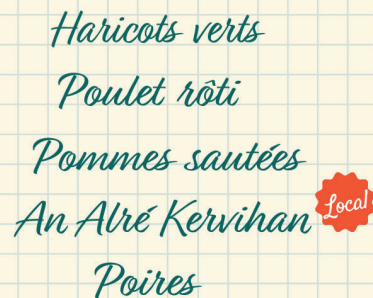 Haricots verts
Poulet rôti
Pommes sautées
An Alré Kervihan Local
Poires